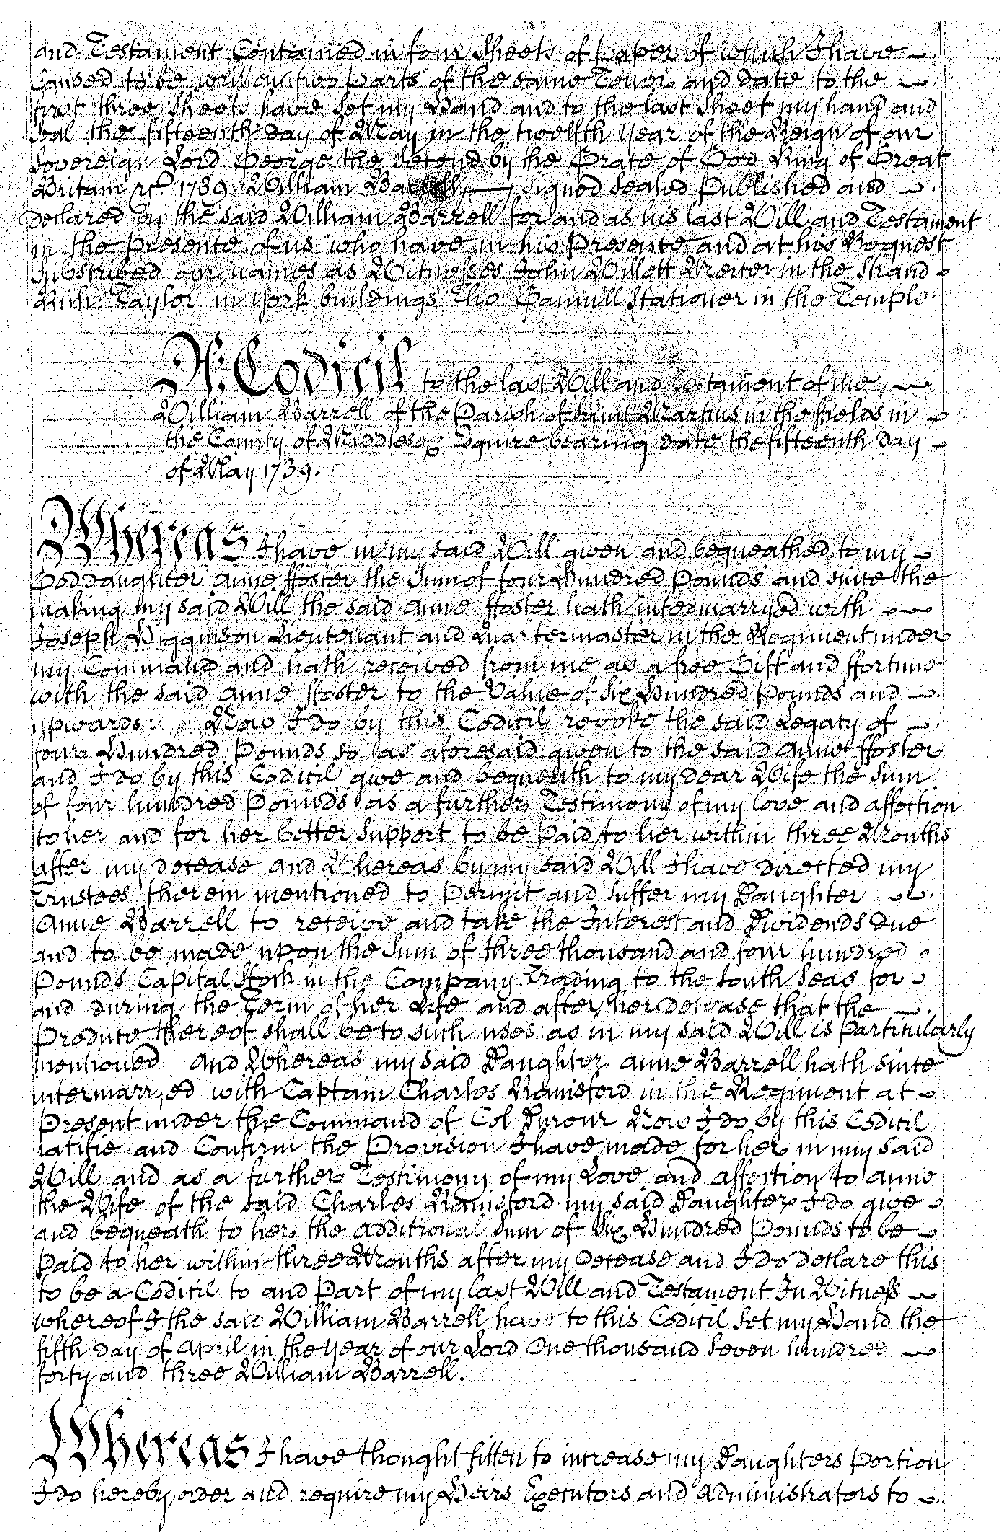 and Testament Contained in four Sheets of Paper of which I have
Caused to be written two Parts of the same Tenor and date to the
first three Sheets have set my Hand and to the last Sheet my hand and
Seal the fifteenth day of May in the twelfth Year of the Reign of our
Sovereign Lord George the Second by the Grace of God King of Great
Britain &c 1739 William Barrell Signed Sealed Published and
Declared by the said William Barrell for and as his last Will and Testament
in the Presence of us who have in his Presence and at his Request
Subscribed our names as Witnesses John Willott in the Strand
Taylor in York buildings Tho Gamull Stationer in the Temple
A Codicil to the last Will and Testament of me
William Barrell of the Parish of Saint Martins in the fields in
the County of Middlesex Esquire bearing date the fifteenth day
of May 1739.
Whereas I have in my said Will given and bequeathed to my
Goddaughter Anne ffoster the Sum of four Hundred Pounds and since the
making my said Will the said Anne ffoster hath intermarryed with
Joseph Higginson Lieutenant and Quartermaster in the Regiment under
my Command and hath received from me as a free Gift and ffortune
with the said Anne ffoster to the Value of Six Hundred Pounds and
upwards Now I do by this Codicil revoke the said Legacy of
four Hundred Pounds so as aforesaid given to the said Anne ffoster
and I do by this Codicil give and bequeath to my dear Wife the Sum
of four hundred Pounds as a further Testimony of my love and affection
to her and for her better Support to be paid to her within three Months
after my decease and Whereas by my said Will I have directed my
Trustees therein mentioned to Permit and suffer my Daughter
Anne Barrell to receive and take the Interest and Dividends due
and to be made upon the Sum of three thousand and four hundred
Pounds Capital Stock in the Company Trading to the South Seas for
and during the Term of her Life and after her decease that the
Produce thereof shall be to such uses as in my said Will is particularly
mentioned And Whereas my said Daughter Anne Barrell hath since
intermarryed with Captain Charles Rainsford in the Regiment at
Present under the Command of Col Duroure Now I do by this Codicil
ratifie and Confirm the Provision I have made for her in my said
Will and as a further Testimony of my Love and affection to Anne
the Wife of the said Charles Rainsford my said Daughter I do give
and bequeath to her the additional Sum of Six Hundred Pounds to be
Paid to her within three Months after my decease and I do declare this
to be a Codicil to and Part of my last Will and Testament In Witness
whereof I the said William Barrell have to this Codicil Set my Hand the
fifth day of April in the year of our Lord One thousand Seven hundred
forty and three William Barrell.
Whereas I have thought fitten to increase my Daughters Portion
I do hereby order and require my Heirs Executors and Administrators to